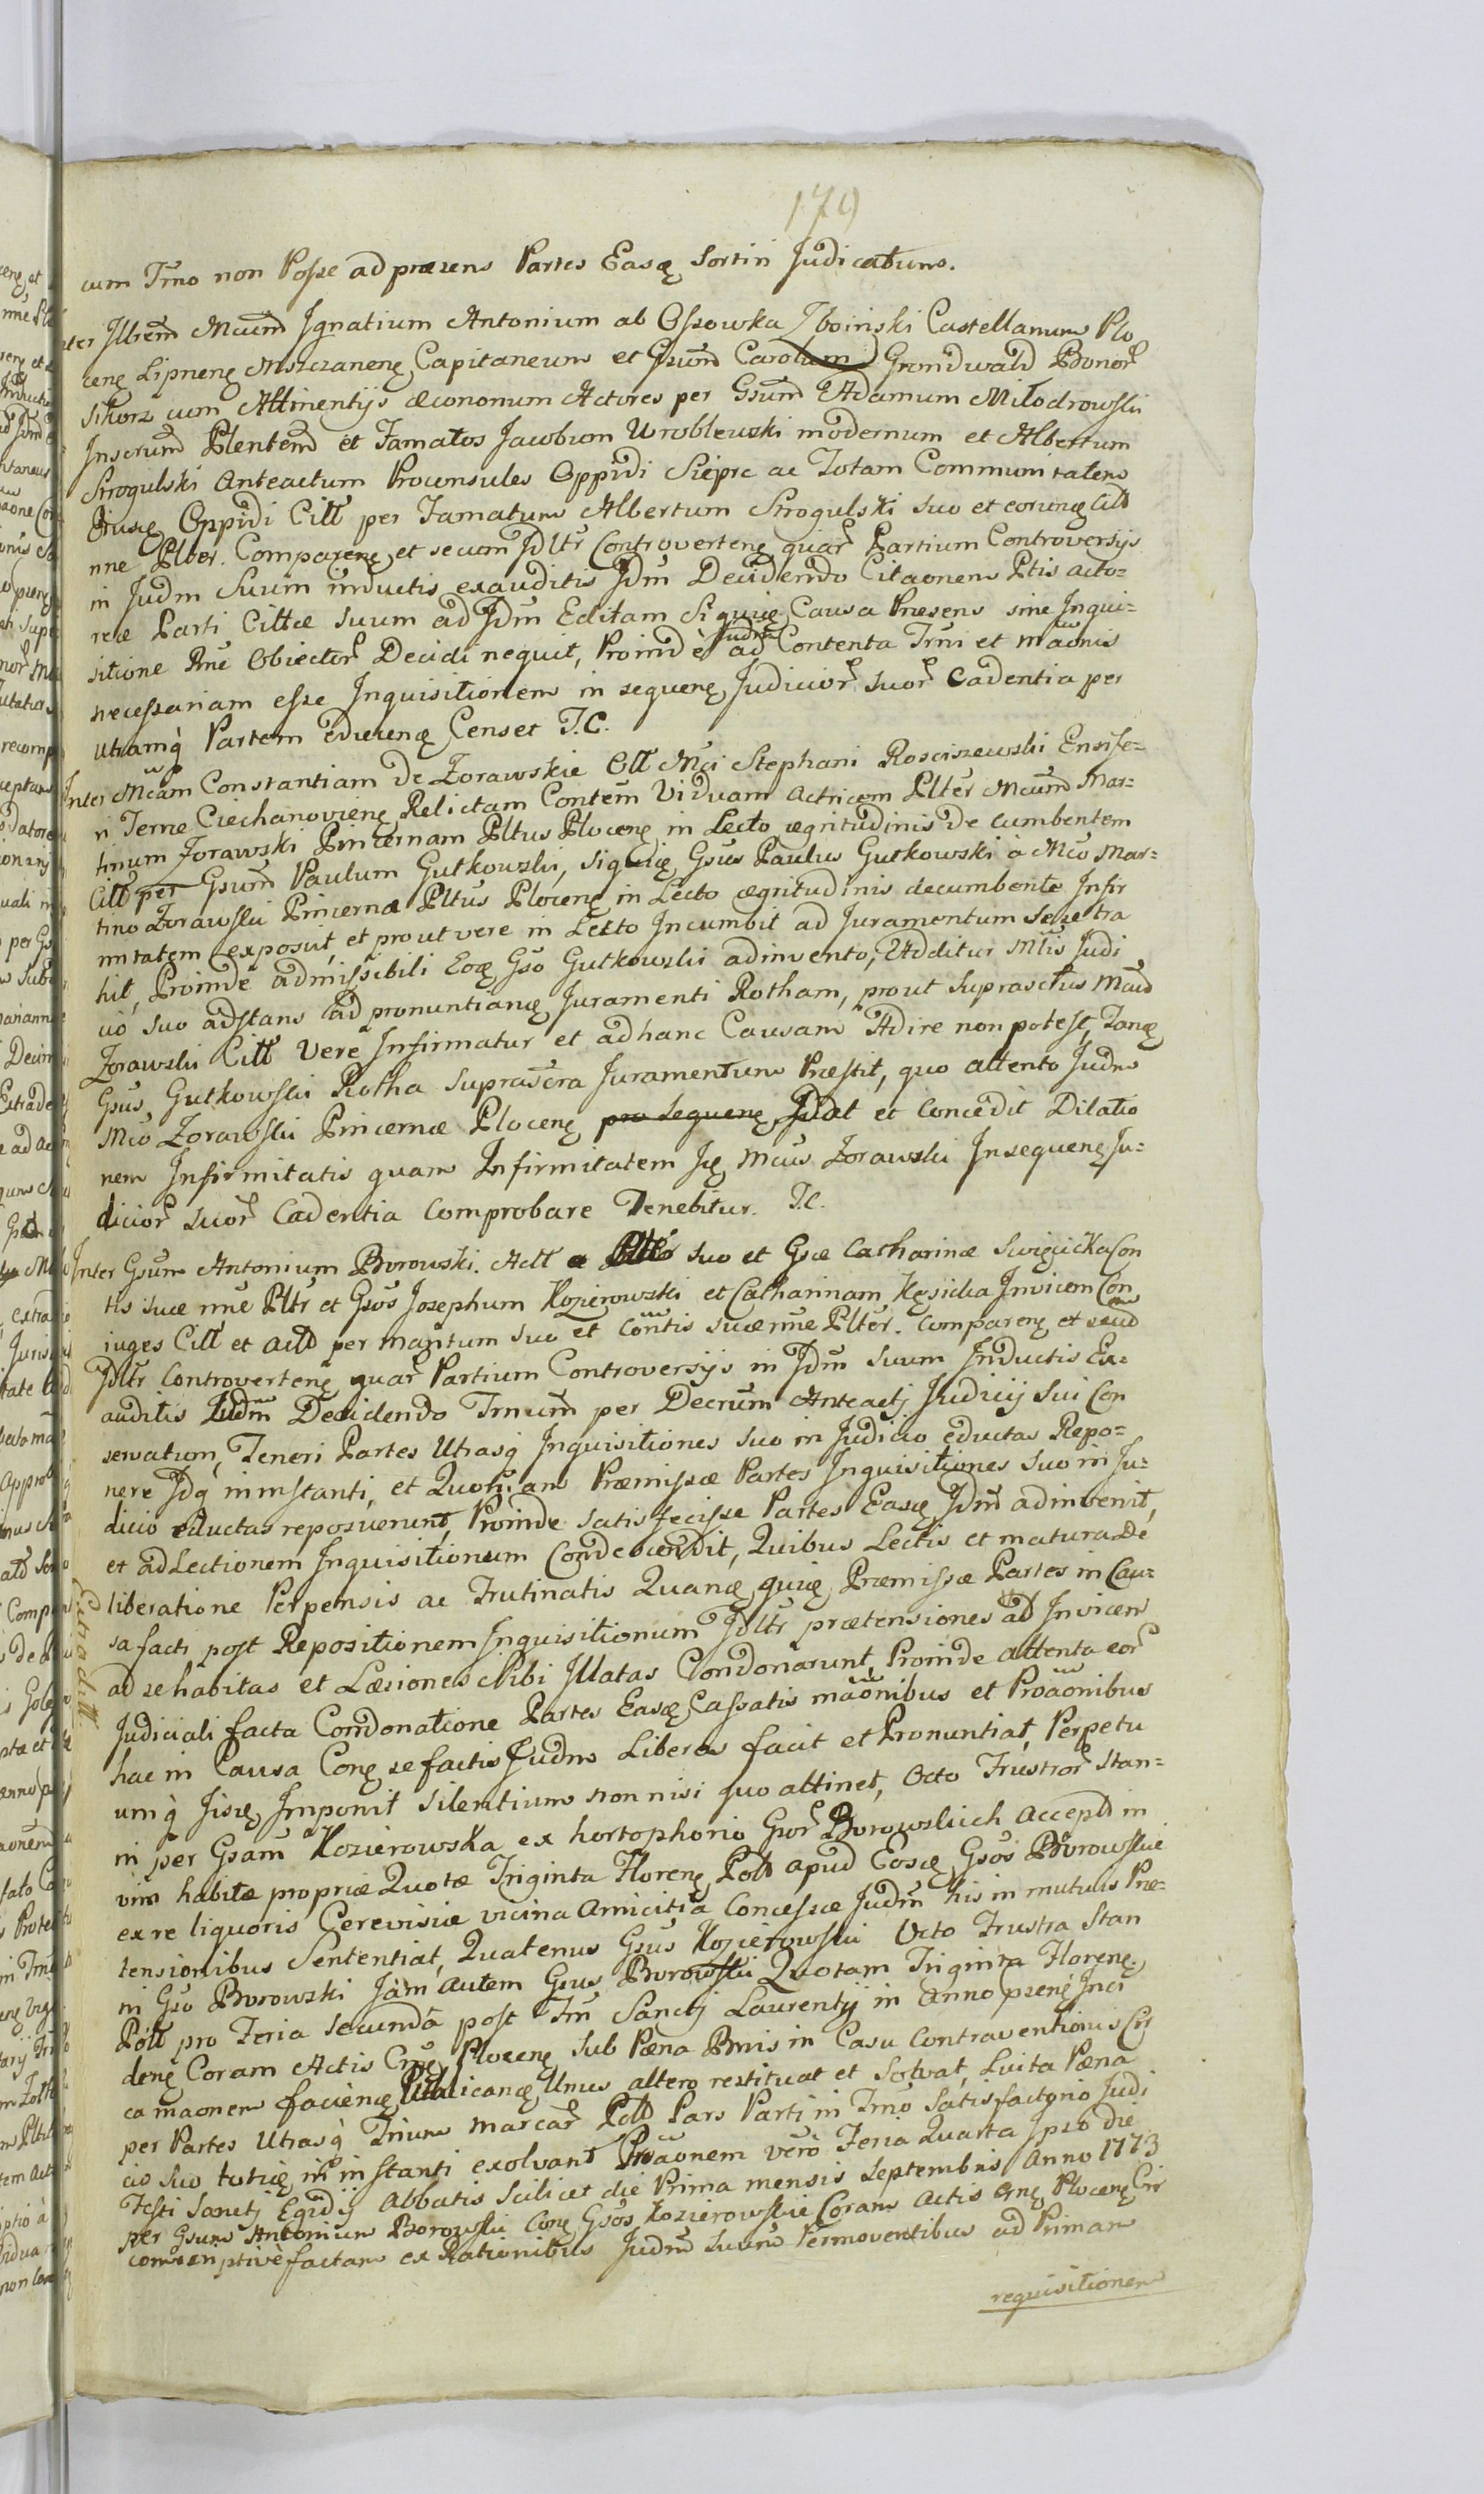 179
cum Trno non Posse ad præsens Partes Easq̨ sortiri Judicatum.
Inter Illrem Mcum Ignatium Antonium ab Ossowka Zboinski Castellanum Plo
cenę Lipnenę Mszczanenę Capitaneum et Gsum Carolum Grondwald Bonor
Sikorz cum Attinentijs æconomum Actores per Gsum Adamum Miłodrowski
Inscrum Plentem et Famatos Jacobum Wroblewski modernum et Albertum
Strogulski Anteactum Proconsules Oppidi Sieprc ac Totam Communitatem
Ejusdę Oppidi Citt per Famatum Albertum Strogulski suo et eorunę Citt
nne Plter. Comparenę et secum Jdltr Controvertenę quar Partium Controversijs
in Judm Suum inductis exauditis Jdm Decidendo Citaonem Ptis acto=
reæ Parti Cittæ suum ad Jdm Editam Siquidę Causa Præsens sine Inqui=
sitione Rne Obiector Decidi nequit, Proindè Judm ad Contenta Trni et maonis
necessariam esse Inquisitionem in sequenę Judicior suor Cadentia per
utramq̀ Partem educenę Censet T.C.
Inter Mcam Constantiam De Zorawskie Ott Mci Stephani Rosciszewski Ensife=
ri Terræ Ciechanovienę Relictam Contem Viduam Actricem Plter Mcum Mar=
tinum Zorawski Pincernam Pltus Plocenę in Lecto ægritudinis de cumbentem
Citt per Gsum Paulum Gutkowski, siquidę Gsus Paulus Gutkowski à Mco Mar=
tino Zorawski Pincerna Pltus Plocenę in Lecto ægritudinis decumbente Infir
mitatem exposuit, et prout vere in Lecto Incumbit ad Juramentum sese tra
hit, Proinde admissibili Eoę Gso Gutkowski adinvento, Additur Mtis Judi
cio suo adstans ad pronuntianę Juramenti Rotham, prout Suprasctus Mcus
Zorawski Citt Vere Infirmatur et ad hanc Causam Adire non potest, Tanę
Gsus Gutkowski Rotha Suprascra Juramentum Præstit, quo attento Judm
Mco Zorawski Pincernæ Plocenę pro sequenę Jdat et Concedit Dilatio
nem Infirmitatis quam Infirmitatem Ję Mcus Zorawski Insequenę Ju=
dicior suor Cadentia Comprobare Tenebitur. T.C.
Inter Gsum Antonium Borowski. Act a Plter suo et Gsæ Catharinæ Swięcicka Con
tis suæ nne Pltr et Gsos Josephum Kozierowski et Catharinam Kęsicka Invicem Con
iuges Citt et act per maritum suo et Contis suæ nne Plter. Comparenę et secum
Jdltr Controvertenę quar Partium Controversijs in Jdm suum Inductis Ex=
auditis Judm Decidendo Trnum per Decrum Anteacti Judicij sui Con
servatum, Teneri Partes Utrasq̀ Inquisitiones suo in Judicio eductas Repo=
nere Jdq̀ in instanti, et Quoniam Præmissæ Partes Inquisitiones suo in Ju=
dicio eductas reposuerunt, Proinde satisfecisse Partes Easdę Jdm adinvenit,
et ad Lectionem Inquisitionum Condescendit, Quibus Lectis et matura de
liberatione Perpensis ac Trutinatis Quanę, quię Præmissæ Partes in Cau=
sa facti post Repositionem Inquisitionum Jdltr prætensiones ad Invicem
ad se habitas et Læsiones sibi Illatas Condonarunt, Proinde attenta eor
Judiciali facta Condonatione Partes Easdę Cassatis maonibus et Proaonibus
hac in Causa Conę se factis Judm Liberas facit et Pronuntiat, Perpetu
umq̀ Jisdę Imponit silentium non nisi quo attinet, Octo Frustror Stan=
ni per Gsam Kozierowska ex hortophorio Gsor Borowskich accept in
vim habitæ propriæ Quotæ Triginta Florenę Polt apud Eosdę Gsos Borowskie
ex re liquoris Cerevisiæ vicina amicitia Concessæ Judm his in mutuis Præ=
tensionibus Sententiat, Quatenus Gsus Kozierowski Octo Frustra Stan
ni Gso Borowski Jam autem Gsus Borowski Quotam Triginta Florenę
Polt pro Feria secunda post Fm Sancti Laurentij in anno præsnę Inci
denę Coram Actis Cnę Plocenę sub Pæna Bnis in Casu Contraventionis Cir
ca maonem facienę Publicanę Unus altero restituat et Solvat, Luita Pæna
per Partes Utrasq̀ Trium marcar Polt Pars Parti in Trno Satisfactorio Judi
cio suo tutię in instanti exolvant Proaonem vero Feria Quarta Ipso die
Festi Sancti Egidij Abbatis scilicet die Prima mensis Septembris Anno 1773
per Gsum Antonium Borowski Conę Gsos Kozierowskie Coram Actis Cnę Plocenę Cir
comscriptivè factam ex Rationibus Judm suum Permoventibus ad Primam
requisitionem
Extradtt.